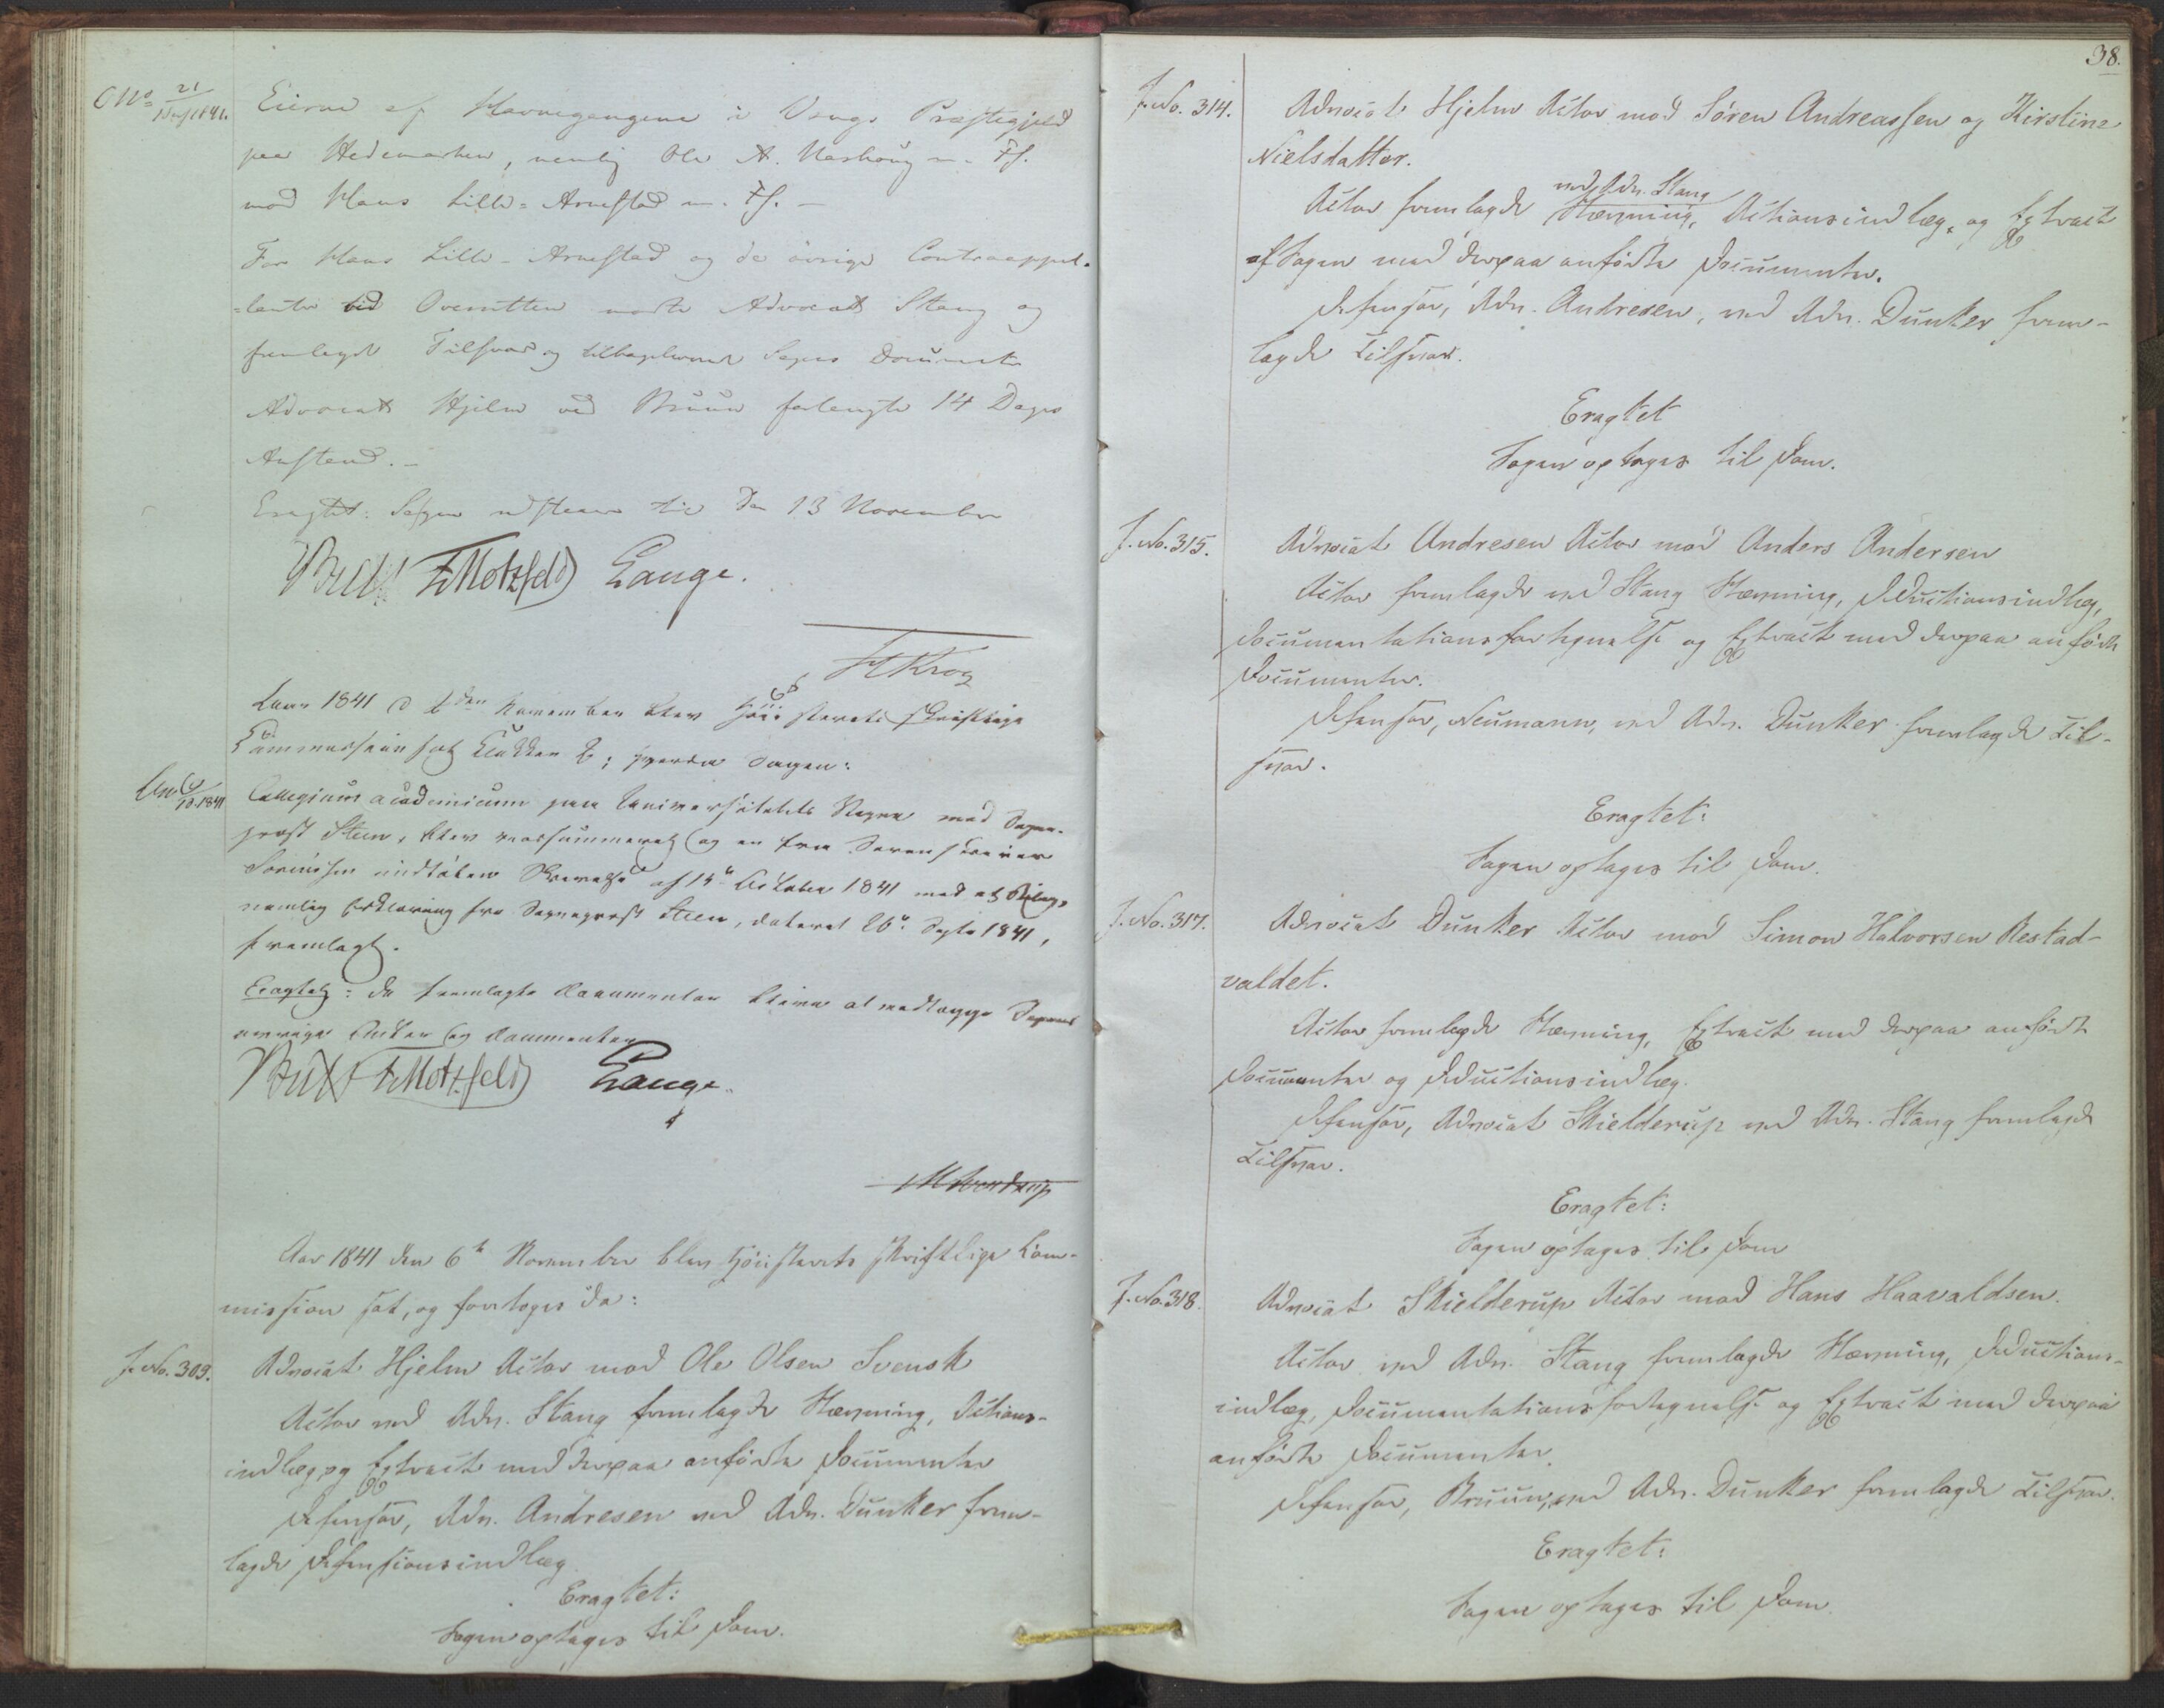 O No 21/1841.
Eierne af Havnegangene i Vangs Præstegjeld
paa Hedemarken, nemlig Ole A. Narhoug m. Fl.
mod Hans Lille-Arnestad m. Fl. —
For Hans Lille-Arnestad og de övrige Contraappel-
lanter ved Overretten mødte Advocat Stang og
fremlagde Tilsvar og tilbageleverede Sagens Documenter
Advocat Hjelm ved Bruun forlangte 14 Dages
Anstand. —
Eragtet: Sagen udstaaer til den 13 November
Motzfeldt Lange.
H Krog
Aar 1841 d 6 den November blev Höiesterets skriftlige
Commission sat Klokken 6; hvorda Sagen:
6/10.1841
Collegium academicum paa Universitetets Vegne mod Sogne-
præst Steen, blev incamineret og en fra Sorenskriver
Sörensen indløben Skrivelse af 15de October 1841 med et Bilag,
nemlig Erklæring fra Sognepræst Steen, dateret 26de Septr 1841,
fremlagt.
Eragtet: de fremlagte Documenter blive at vedlægge Sagens
øvrige Akter og Documenter
Motzfeldt Lange.
Aar 1841 den 6te November blev Höiesterets skriftlige Com-
mission sat, og foretoges da:
J. No. 309.
Advocat Hjelm Actor mod Ole Olsen Svensk
Actor ved Adv. Stang fremlagde Stævning, Actions-
indlæg og Extract med derpaa anförte Documenter
Defensor, Adv. Andresen ved Adv. Dunker frem-
lagde Defensionsindlæg
Eragtet:
Sagen optages til Dom.
38.
J. No. 314.
Advocat Hjelm Actor mod Sören Andreassen og Kirstine
Nielsdatter.
ved Adv. Stang
Actor fremlagde Stævning, Actionsindlæg, og Extract
af Sagen med derpaa anförte Documenter.
Defensor, Adv. Andresen, ved Adv. Dunker frem-
lagde Tilsvar.
Eragtet
Sagen optages til Dom.
J. No. 315.
Advocat Andresen Actor mod Anders Andersen
Actor fremlagde ved Stang Stævning, Deductionsindlæg,
Documentationsfortegnelse og Extract med derpaa anförte
Documenter.
Defensor, Neumann, ved Adv. Dunker fremlagde Til-
svar.
Eragtet:
Sagen optages til Dom.
J. No. 317.
Advocat Dunker Actor mod Simon Halvorsen Restad-
valdet.
Actor fremlagde Stævning, Extract med derpaa anförte
Documenter og Deductionsindlæg.
Defensor, Advocat Skielderup ved Adv. Stang fremlagde
Tilsvar.
Eragtet:
Sagen optages til Dom
J. No. 318.
Advocat Skielderup Actor mod Hans Haavaldsen.
Actor ved Adv. Stang fremlagde Stævning, Deductions-
indlæg, Documentationsfortegnelse og Extract med derpaa
anförte Documenter.
Defensor, Bruun, ved Adv. Dunker fremlagde Tilsvar.
Eragtet:
Sagen optages til Dom.